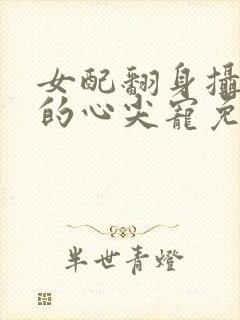 女配翻身攝
的心尖寵免
半世青燈